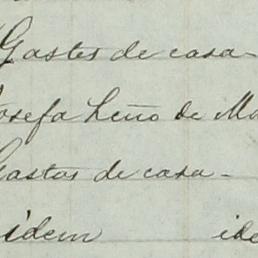 Gastos de casa-
Josefa Leño de Ma
Gastos de casa-
idem ide